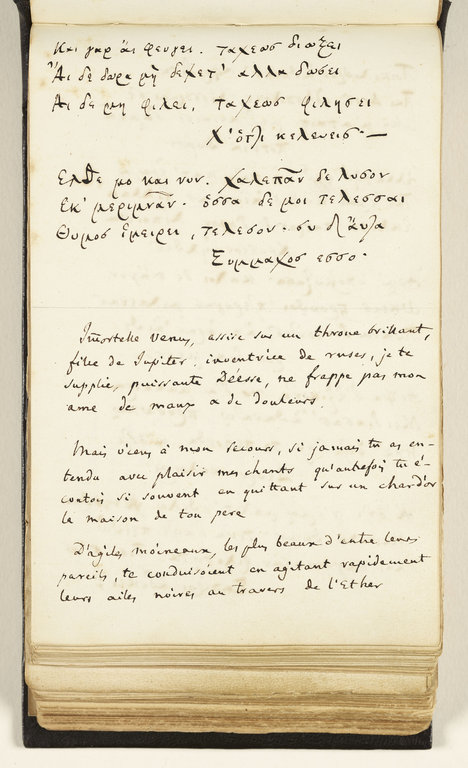 Και γαρ ἁι φευγει. ταχεως διωξει
Ἁι δε δωρα μη δεχετ' αλλα δωσει
Αι δε μη φιλει, ταχεως φιλησει
Χ' ὁτ]ι κελευεις. —
Ελθε μο και νυν. χαλεπᾶν δε λυσον
Εκ' μεριμνᾶν. ὁσσα δε μοι τελεσσαι
Θυμος ἱμειρει, τελεσον. συ δ' ἀυτα
Συμμαχος εσσο.
Immortelle Venus, assise sur un throne brillant,
fille de Jupiter, inventrice de ruses, je te
supplie, puissante Déesse, ne frappe pas mon
ame de maux & de douleurs.
Mais viens à mon secours, si jamais tu as en-
tendu avec plaisir mes chants qu'autrefois tu é-
coutois si souvent en quittant sur un char d'or
la maison de ton pere
D'agiles moineaux, les plus beaux d'entre leurs
pareils, te conduisoient en agitant rapidement
leurs ailes noires au travers de l'Ether